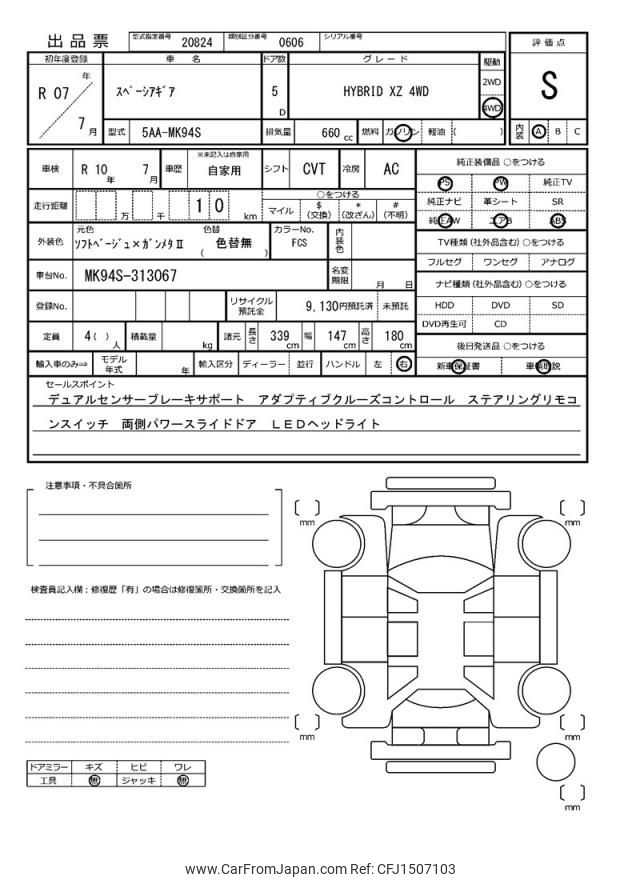 出品票 型式指定番号 20824 類別区分番号 0606 シリアル番号
初年度登録 車名 ドア数 グレード 駆動 評価点
R 07 年 7 月 スペーシアギア 5 D HYBRID XZ 4WD 2WD 4WD S
型式 5AA-MK94S 排気量 660 cc 燃料 ガソリン 軽油 ( ) 内装 A B C
車検 R 10 年 7 月 車歴 ※未記入は自家用 自家用 シフト CVT 冷房 AC 純正装備品 ○をつける
PS PW 純正TV
走行距離 万 千 1 0 km ○をつける 純正ナビ 革シート SR
マイル $(交換) *(改ざん) #(不明) 純正AW エアB ABS
外装色 元色 ソフトベージュ×ガンメタⅡ 色替 (色替無) カラーNo. FCS 内装色 TV種類 (社外品含む) ○をつける
フルセグ ワンセグ アナログ
車台No. MK94S-313067 名変期限 月 日 ナビ種類 (社外品含む) ○をつける
登録No. リサイクル預託金 9,130円預託済 未預託 HDD DVD SD
DVD再生可 CD
定員 4( )人 積載量 kg 諸元 長さ 339 cm 幅 147 cm 高さ 180 cm 後日発送品 ○をつける
輸入車のみ⇒ モデル年式 年 輸入区分 ディーラー 並行 ハンドル 左 右 新車保証書 車輌取説
セールスポイント
デュアルセンサーブレーキサポート アダプティブクルーズコントロール ステアリングリモコ
ンスイッチ 両側パワースライドドア LEDヘッドライト
注意事項・不具合箇所
mm mm
検査員記入欄:修復歴「有」の場合は修復箇所・交換箇所を記入
mm mm
ドアミラー キズ ヒビ ワレ
工具 無 ジャッキ 無
mm
www.CarFromJapan.com Ref: CFJ1507103